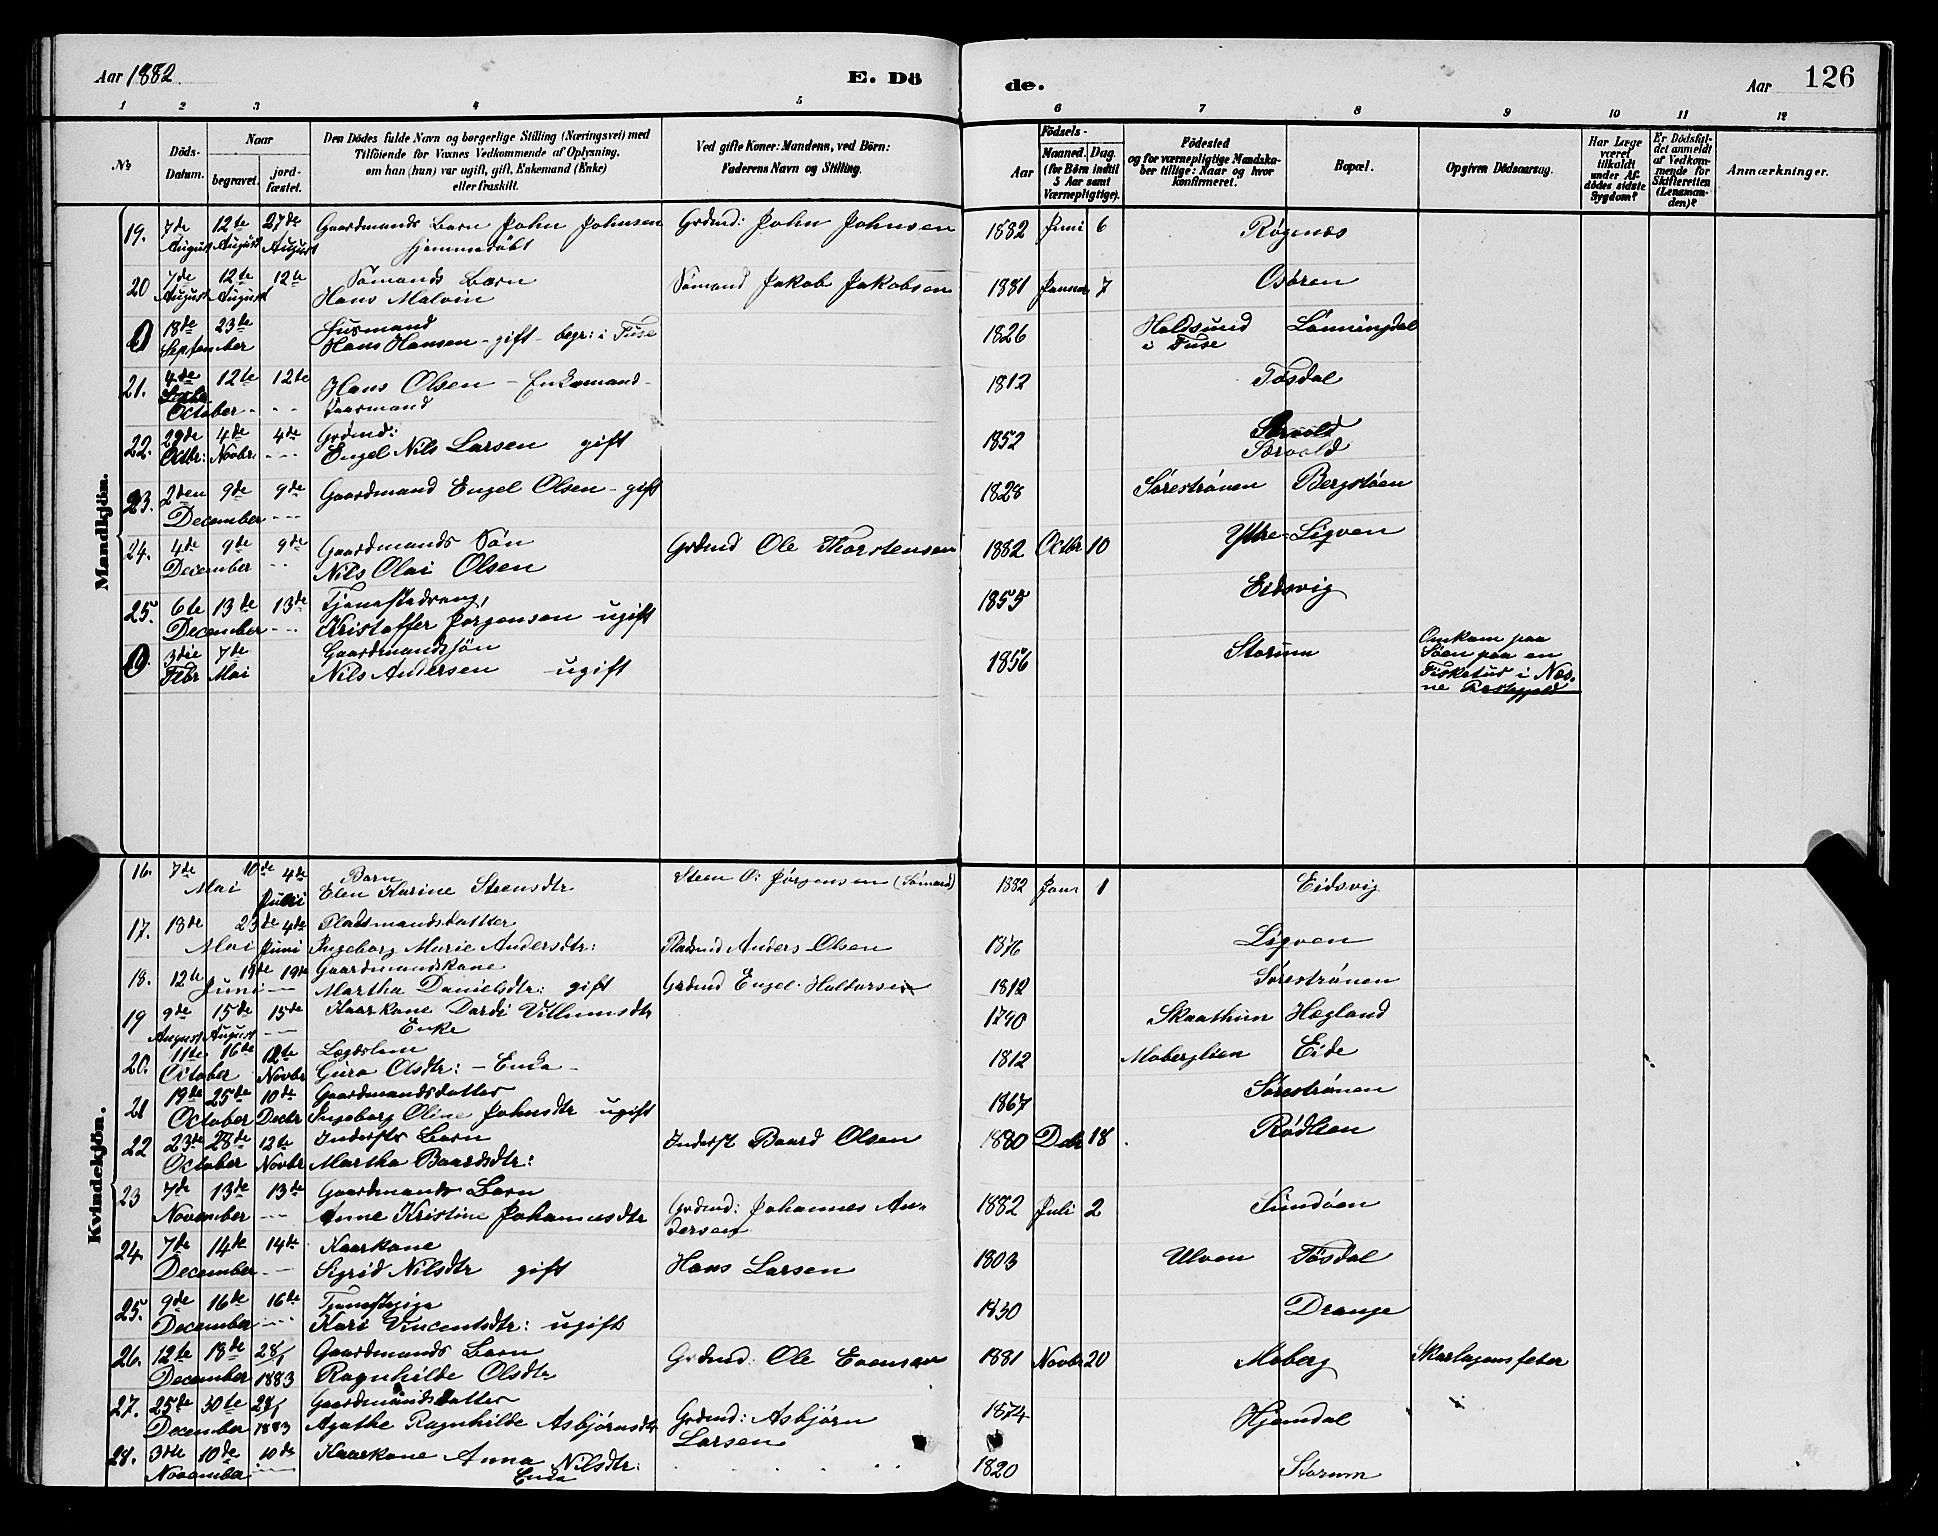 Aar 1882.
E. Dö
de.
Aar
126
1 2 3 4 5 6 7 8 9 10 11 12
No
Döds-Datum.
Naar
begravet.
jord-fæstet.
Den Dödes fulde Navn og borgerlige Stilling (Næringsvei) med
Tilföiende for Voxnes Vedkommende af Oplysning,
om han (hun) var ugift, gift, Enkemand (Enke)
eller fraskilt.
Ved gifte Koner: Mandens, ved Börn:
Faderens Navn og Stilling.
Födsels-
Aar
Maaned.
Dag.
(for Börn indtil
5 Aar samt
Værnepligtige).
Födested
og for værnepligtige Mandska-
ber tillige: Naar og hvor
konfirmeret.
Bopæl.
Opgiven Dödsaarsag.
Har Læge
været
tilkaldt
under Af-
dödes sidste
Sygdom?
Er Dödsfal-
det anmeldt
af Vedkom-
mende for
Skifteretten
(Lensman-
den)?
Anmærkninger.
Mandkjön.
19. 7de 12te 27de Gaardmands Barn John Johnsen Grdmd: John Johnsen 1882 Juni 6 Røgenæs
August August August hjemmedøbt
20 7de 12te 12te Sømands Barn Sømand Jakob Jakobsen 1881 Januar 7 Osøren
August August Hans Malvin
0 18de 23de Husmand 1826 Holdsund Lønningdal
September Hans Hansen - gift - begr: i Fuse i Fuse
21. 4de 12te 12te Hans Olsen - Enkemand - 1812 Tøsdal
October - - - Kaarmand
22. 29de 4de 4de Grdmd: 1852
Octbr: Novbr - - - Engel Nils Larsen gift Særvold
23. 2den 9de 9de Gaardmand Engel Olsen - gift 1828 Sørestrønen Bergstøen
December - - -
24. 4de 9de 9de Gaardmands Søn Grdmd Ole Thorstensen 1882 Octbr 10 Ytre-Ligven
December - - Nils Olai Olsen
25. 6te 13de 13de Tjenestedreng, 1855 Eidsvig
December - - - Kristoffer Jørgensen ugift
0. 3die 7de Gaardmandssøn 1856 Storum Omkom paa
Febr Mai Nils Andersen ugift Søen paa en
Fisketur i Nes-
ne Præstegjeld
Kvindekjön.
16. 7de 10de 4de Barn Steen O: Jørgensen (Sømand) 1882 Janr 1 Eidsvig
Mai Juni Elen Karine Steensdtr
17. 18de 23de 4de Pladsmandsdatter
Mai Juni Ingeborg Marie Andersdtr: Pladsmd Anders Olsen 1876 Ligven
18. 12te 19de 19de Gaardmandskone Sørestrønen
Juni - - Martha Danielsdtr: gift Grdmd Engel Haldorsen 1812
19 9de 15de 15de Kaarkone Dordi Villumsdtr 1790 Skaathun Hægland
August August - - Enke
20. 11te 16de 12te Lægdslem 1812 Moberglien Eide
October Novbr Guro Olsdtr: - Enke -
21 19de 25de 10de Gaardmandsdatter 1867 Sørestrønen
October Decbr Ingeborg Oline Johnsdtr ugift
22 23de 28de 12te Indersts Barn Inderst Baard Olsen 1880 Decbr 18 Rødlien
October Novbr Martha Baardsdtr:
23 7de 13de 13de Gaardmands Barn Grdmd: Johannes An- 1882 Juli 2 Sundøen
November - - - Anne Kristine Johannesdtr dersen
24. 7de 14de 14de Kaarkone Hans Larsen 1803 Ulven Tøsdal
December - - Sigrid Nilsdtr gift
25. 9de 16de 16de Tjenestepige 1830 Drange
December - - - Kari Vincentsdtr: ugift
26. 12te 18de 28/1 Gaardmands Barn Grdmd: Ole Evensen 1881 Novbr 20 Moberg Skarlagensfeber
December 1883 Ragnhilde Olsdtr
27. 25de 30te 28/1 Gaardmandsdatter Grdmd: Asbjørn 1874 Hjemdal
December 1883 Agathe Ragnhilde Asbjørnsdtr Larsen
28. 3die 10de 10de Kaarkone Anna Nilsdtr: 1820 Storum
November - - Enke